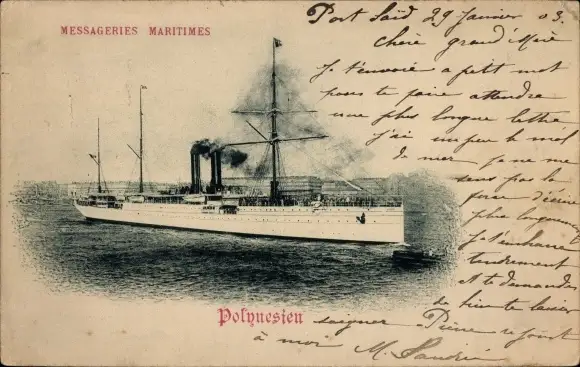 MESSAGERIES MARITIMES
Port Saïd 29 Janvier 03.
Chère grand'Mère
Je t'envoie a petit mot
pour te faire attendre
une plus longue lettre
J'ai un peu le mal
de mer je ne me
sens pas la
force d'écrire
plus longuement
Je t'embrasse
tendrement
de bien te laisser
Polynesien
soigner Pierre se joint
à moi M.